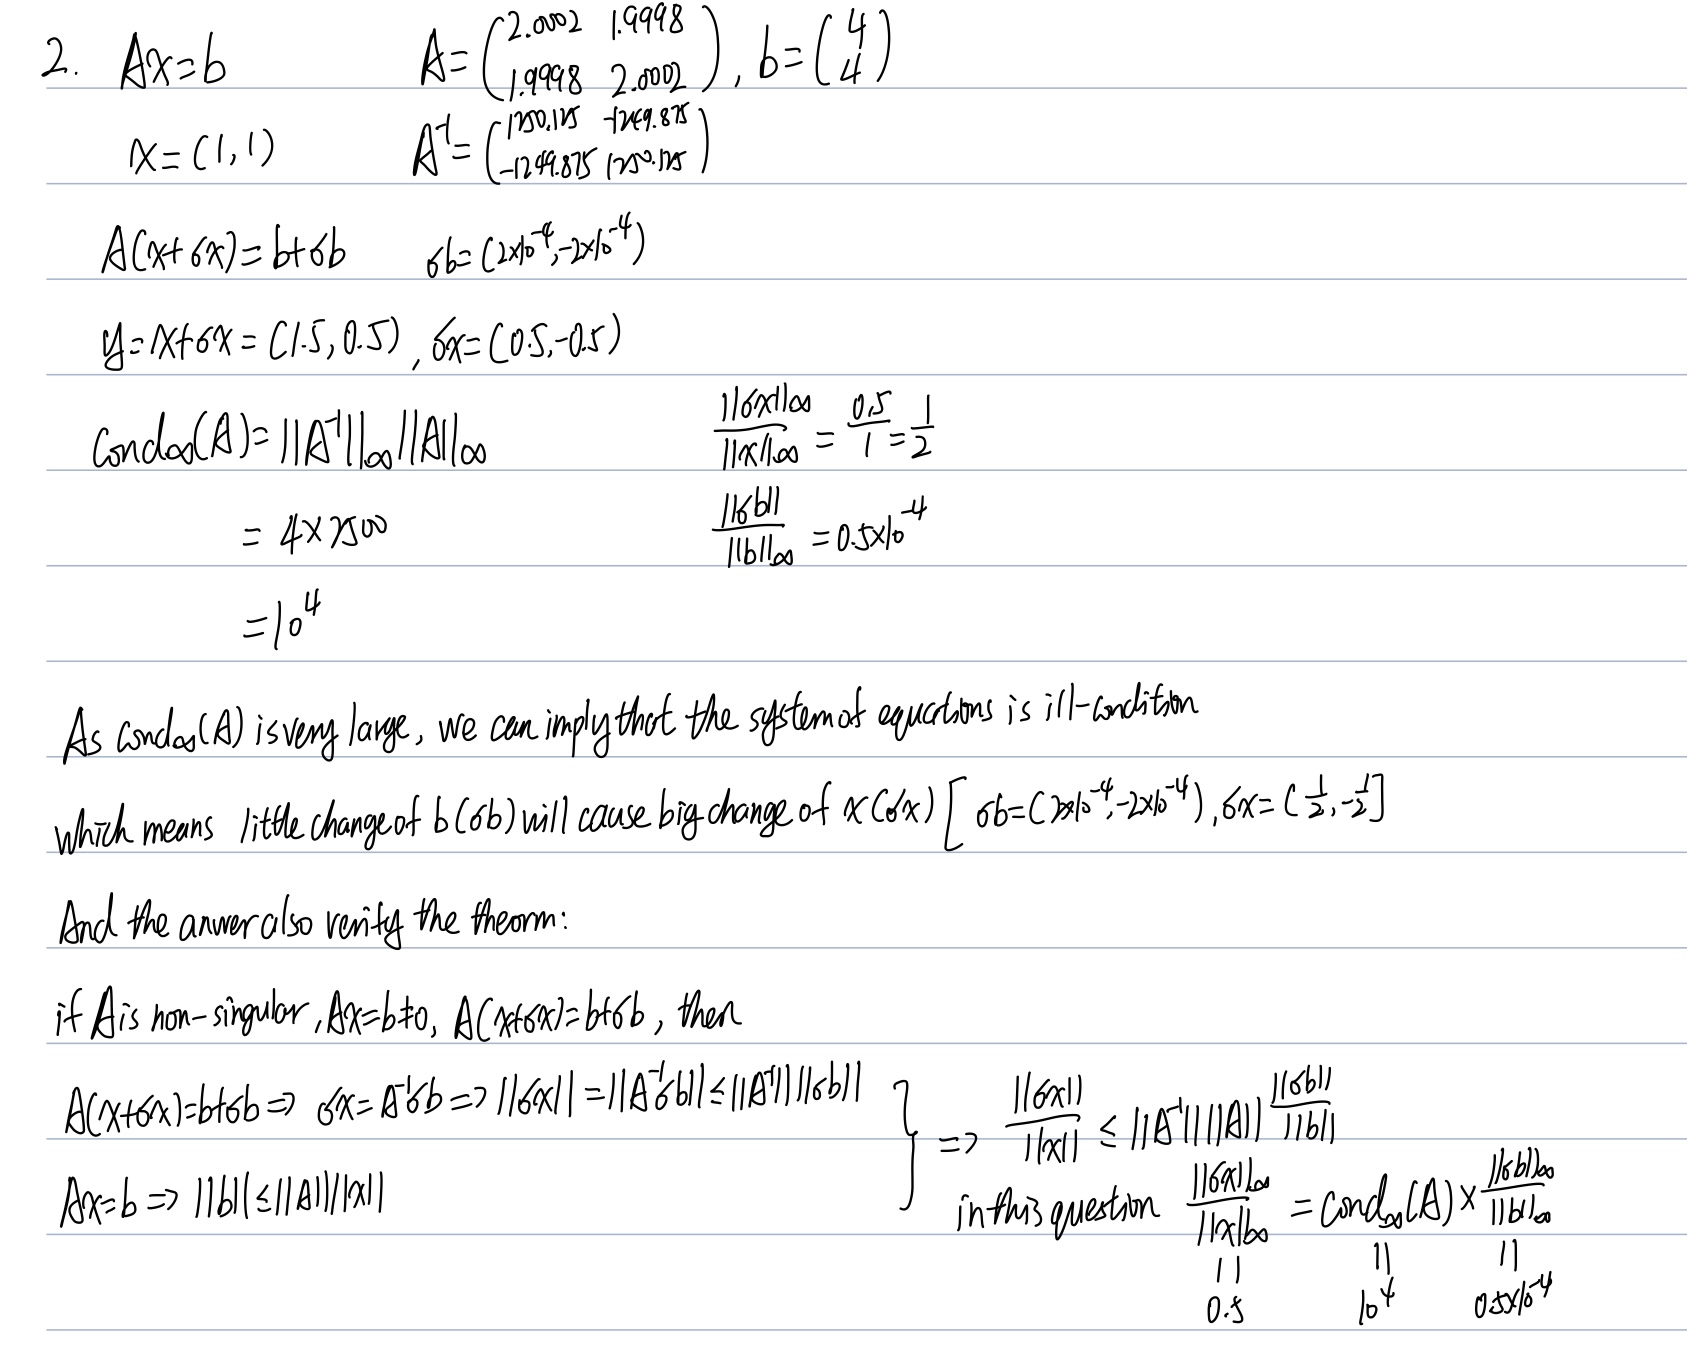 2. Ax=b A=(2.0002 1.9998 1.9998 2.0002), b=(4 4)
x=(1,1) A⁻¹=(1250.125 -1249.875 -1249.875 1250.125)
A(x+δx)=b+δb δb=(2×10⁻⁴,-2×10⁻⁴)
y=x+δx=(1.5,0.5), δx=(0.5,-0.5)
Cond∞(A)=||A⁻¹||∞||A||∞ ||δx||∞/||x||∞ = 0.5/1 = 1/2
= 4×2500 ||δb||/||b||∞ = 0.5×10⁻⁴
=10⁴
As Cond∞(A) is very large, we can imply that the system of equations is ill-condition
which means little change of b(δb) will cause big change of x(δx) [δb=(2×10⁻⁴,-2×10⁻⁴), δx=(1/2,-1/2]
And the anwer also verify the theorm:
if A is non-singular, Ax=b≠0, A(x+δx)=b+δb, then
A(x+δx)=b+δb => δx=A⁻¹δb => ||δx||=||A⁻¹δb||≤||A⁻¹|| ||δb||
Ax=b => ||b||≤||A|| ||x||
} => ||δx||/||x|| ≤ ||A⁻¹|| ||A|| ||δb||/||b||
in this question ||δx||∞/||x||∞ = Cond∞(A)×||δb||∞/||b||∞
|| || ||
0.5 10⁴ 0.5×10⁻⁴